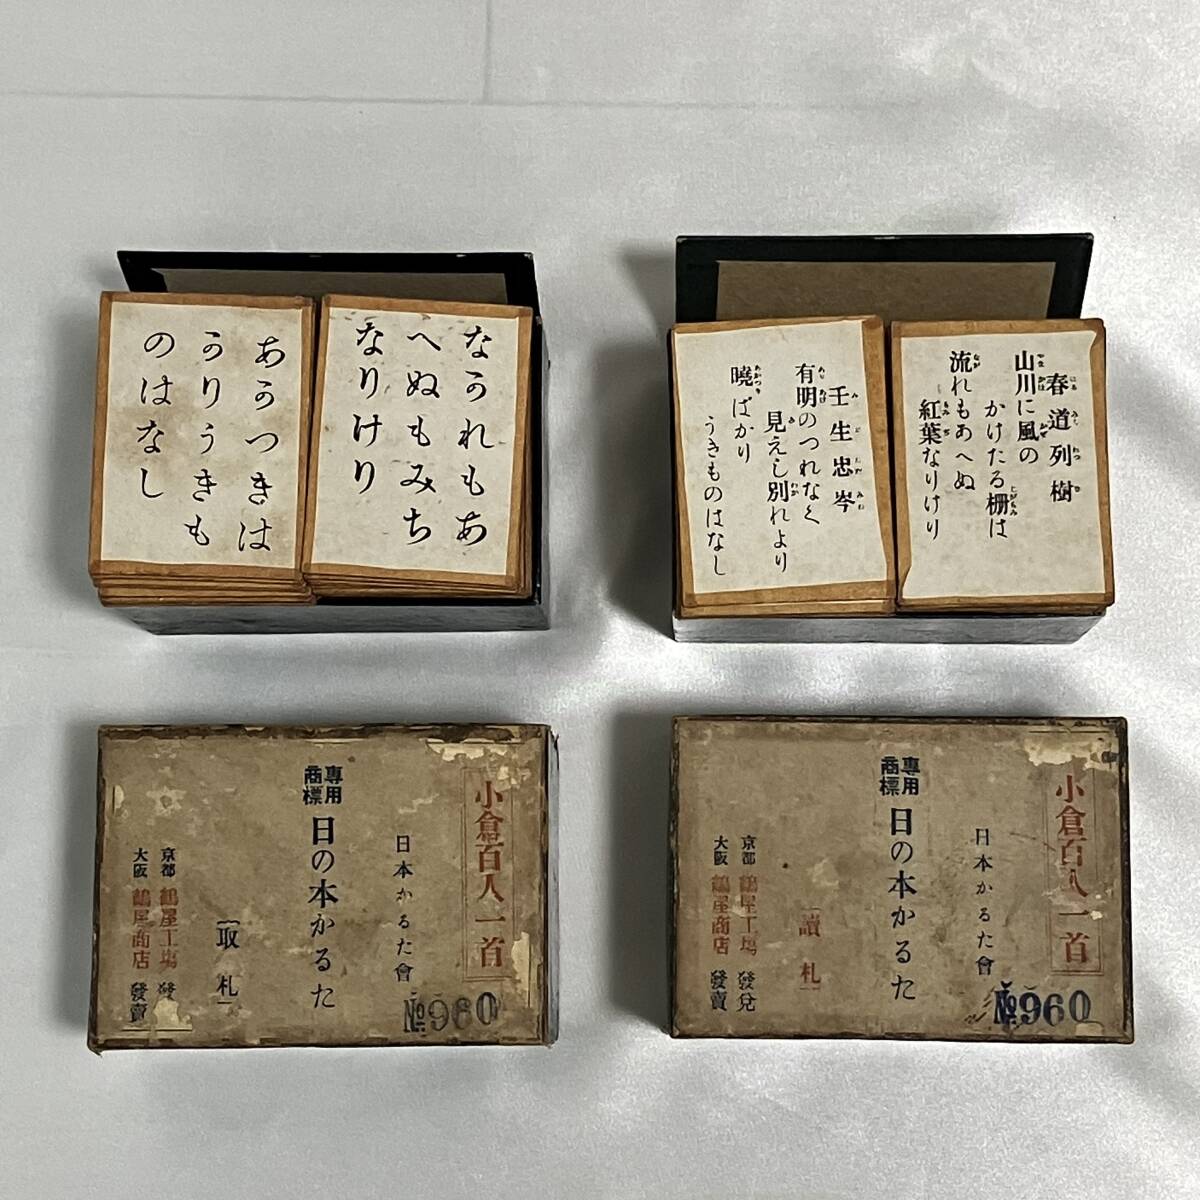 なかれもあ
へぬもみち
なりけり
あかつきは
かりうきも
のはなし
春道列樹
山川に風の
かけたる柵は
流れもあへぬ
紅葉なりけり
壬生忠岑
有明のつれなく
見えし別れより
曉ばかり
うきものはなし
小倉百人一首
日本かるた會
専用
商標
日の本かるた
取札
京都 鶴屋工場 發
大阪 鶴屋商店 發賣
№960
小倉百人一首
日本かるた會
専用
商標
日の本かるた
讀札
京都 鶴屋工場 發兌
大阪 鶴屋商店 發賣
№960